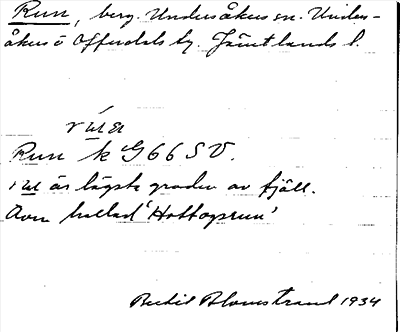 Run, berg. Undersåkers sn. Unders-
åkers o Offerdals tg. Jämtlands l.
Run k G66SV.
är lägsta graden av fjäll.
Även kallad 'Hottogsrun'
Bertil Blomstrand 1934